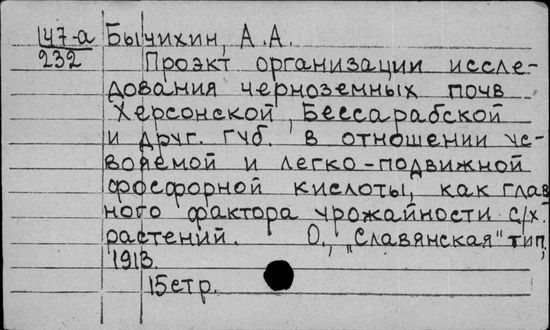 147-а Бычихин, А.А.
232 Проэкт организации иссле-
дования черноземных почв
Херсонской, Бессарабской
и друг. губ. в отношении ус-
вояемой и легко-подвижной
фосфорной кислоты, как глав
ного фактора урожайности с/х.
растений. О., "Славянская" тип,
1913.
15 стр.